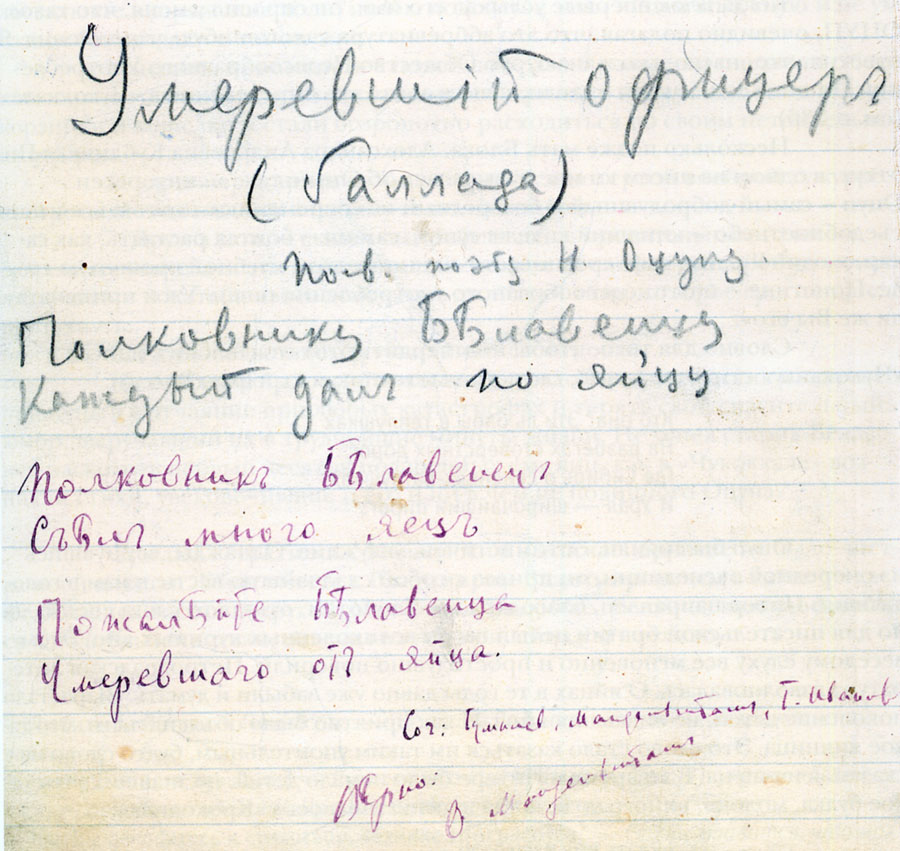 Умеревшій офицеръ
(баллада)
Посв. поэту Н. Оцупу
Полковнику Бѣлавенцу
Каждый далъ по яйцу
Полковникъ Бѣлавенецъ
Съѣлъ много яецъ
Пожалѣйте Бѣлавенца
Умеревшаго отъ яйца.
Соч: Гумилев, Мандельштам, Г. Иванов
Верно:
О Мандельштам